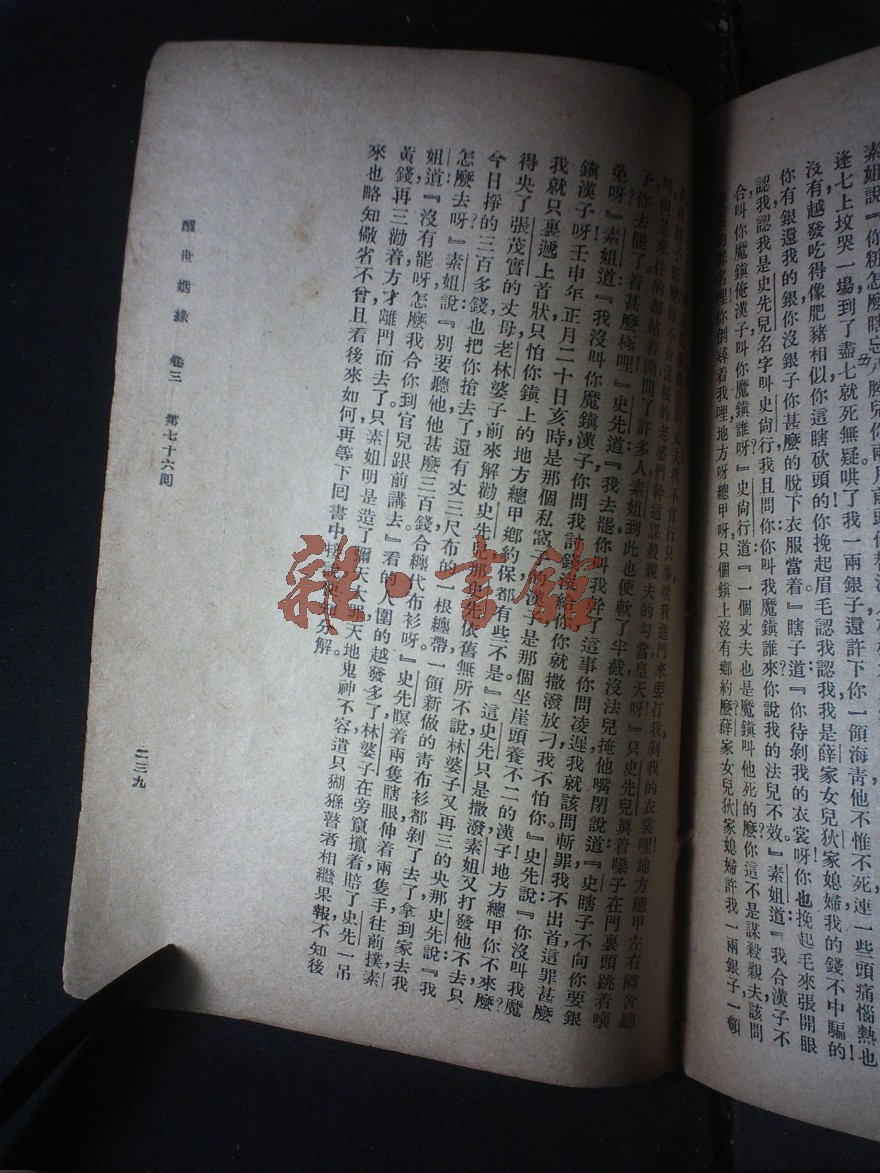 素姐說『你
逢七上墳哭一場到了盡七就死無疑哄了我一兩銀子還許下你一領海青他不惟不死連一些頭痛惱熱也
沒有越發吃得像肥豬相似你這瞎砍頭的你挽起眉毛認我認我是薛家女兒狄家媳婦我的錢不中騙的!
你有銀還我的銀你沒銀子你甚麼的脫下衣服當着』瞎子道:『你待剝我的衣裳呀你也挽起毛來張開眼
認我認我是史先兒名字叫史尙行我且問你你叫我魔鎭誰來你說我的法兒不效』素姐道:『我合漢子不
合叫你魔鎭俺漢子叫你魔鎭誰呀』史尙行道:『一個丈夫也是魔鎭叫他死的麼?你這不是謀殺親夫該問
罪名哩你倒尋着我哩地方呀總甲呀只個鎭上沒有鄕約麼?薛家女兒狄家媳婦許我一兩銀子一頓
我不肯行只專哄我進門來要打我剝我的衣裳哩地方總甲左右鄰舍聽
的老婆們幹這謀殺親夫的勾當皇天呀』只史先兒眞着嗓子在門裏頭跳着嚷
叫,但是來往的都站着開問了許多人素姐到此也便軟了半截沒法兒掩他嘴閉說道:『史瞎子不向你要銀
子,你去罷了着甚麼極哩』史先道:『我去罷你叫我幹了這事你問凌遲我就該問斬罪我不出首這罪甚麼
免呀!』素姐道:『我沒叫你魔鎭漢子你問我討銀沒給你你就撒潑放刁我不怕你』史先說:『你沒叫我魔
鎭漢子呀!壬申年正月二十日亥時是那個私窩子的漢子是那個坐崖頭養不二的漢子!地方總甲你不來麼?
我就只裏遞上首狀只怕你鎭上的地方總甲鄕約保都有些不是』這史先只是撒潑素姐又打發他不去只
得央了張茂實的丈母老林婆子前來解勸史先兒那史先依舊無所不說林婆子又再三的央那史先說:『我
今日掙的三百多錢也把你搶去了還有丈三尺布的一根纏帶一領新做的靑布衫都剝了去了拿到家去我
怎麼去呀』素姐說:『別要聽他他甚麼三百錢合纏代布衫呀』史先瞑着兩隻瞎眼伸着兩隻手往前撲素
姐道:『沒有罷呀怎麼我合你到官兒跟前講去』看的人圍的越發多了林婆子在旁竄攛着賠了史先一吊
黃錢再三勸着方才離門而去了只素姐明是造了彌天大罪天地鬼神不容遣只猢猻瞽者相繼果報不知後
來也略知儆省不曾且看後來如何再等下回書中 分解
醒世姻緣 卷三 第七十六囘
二三九
雜·書館